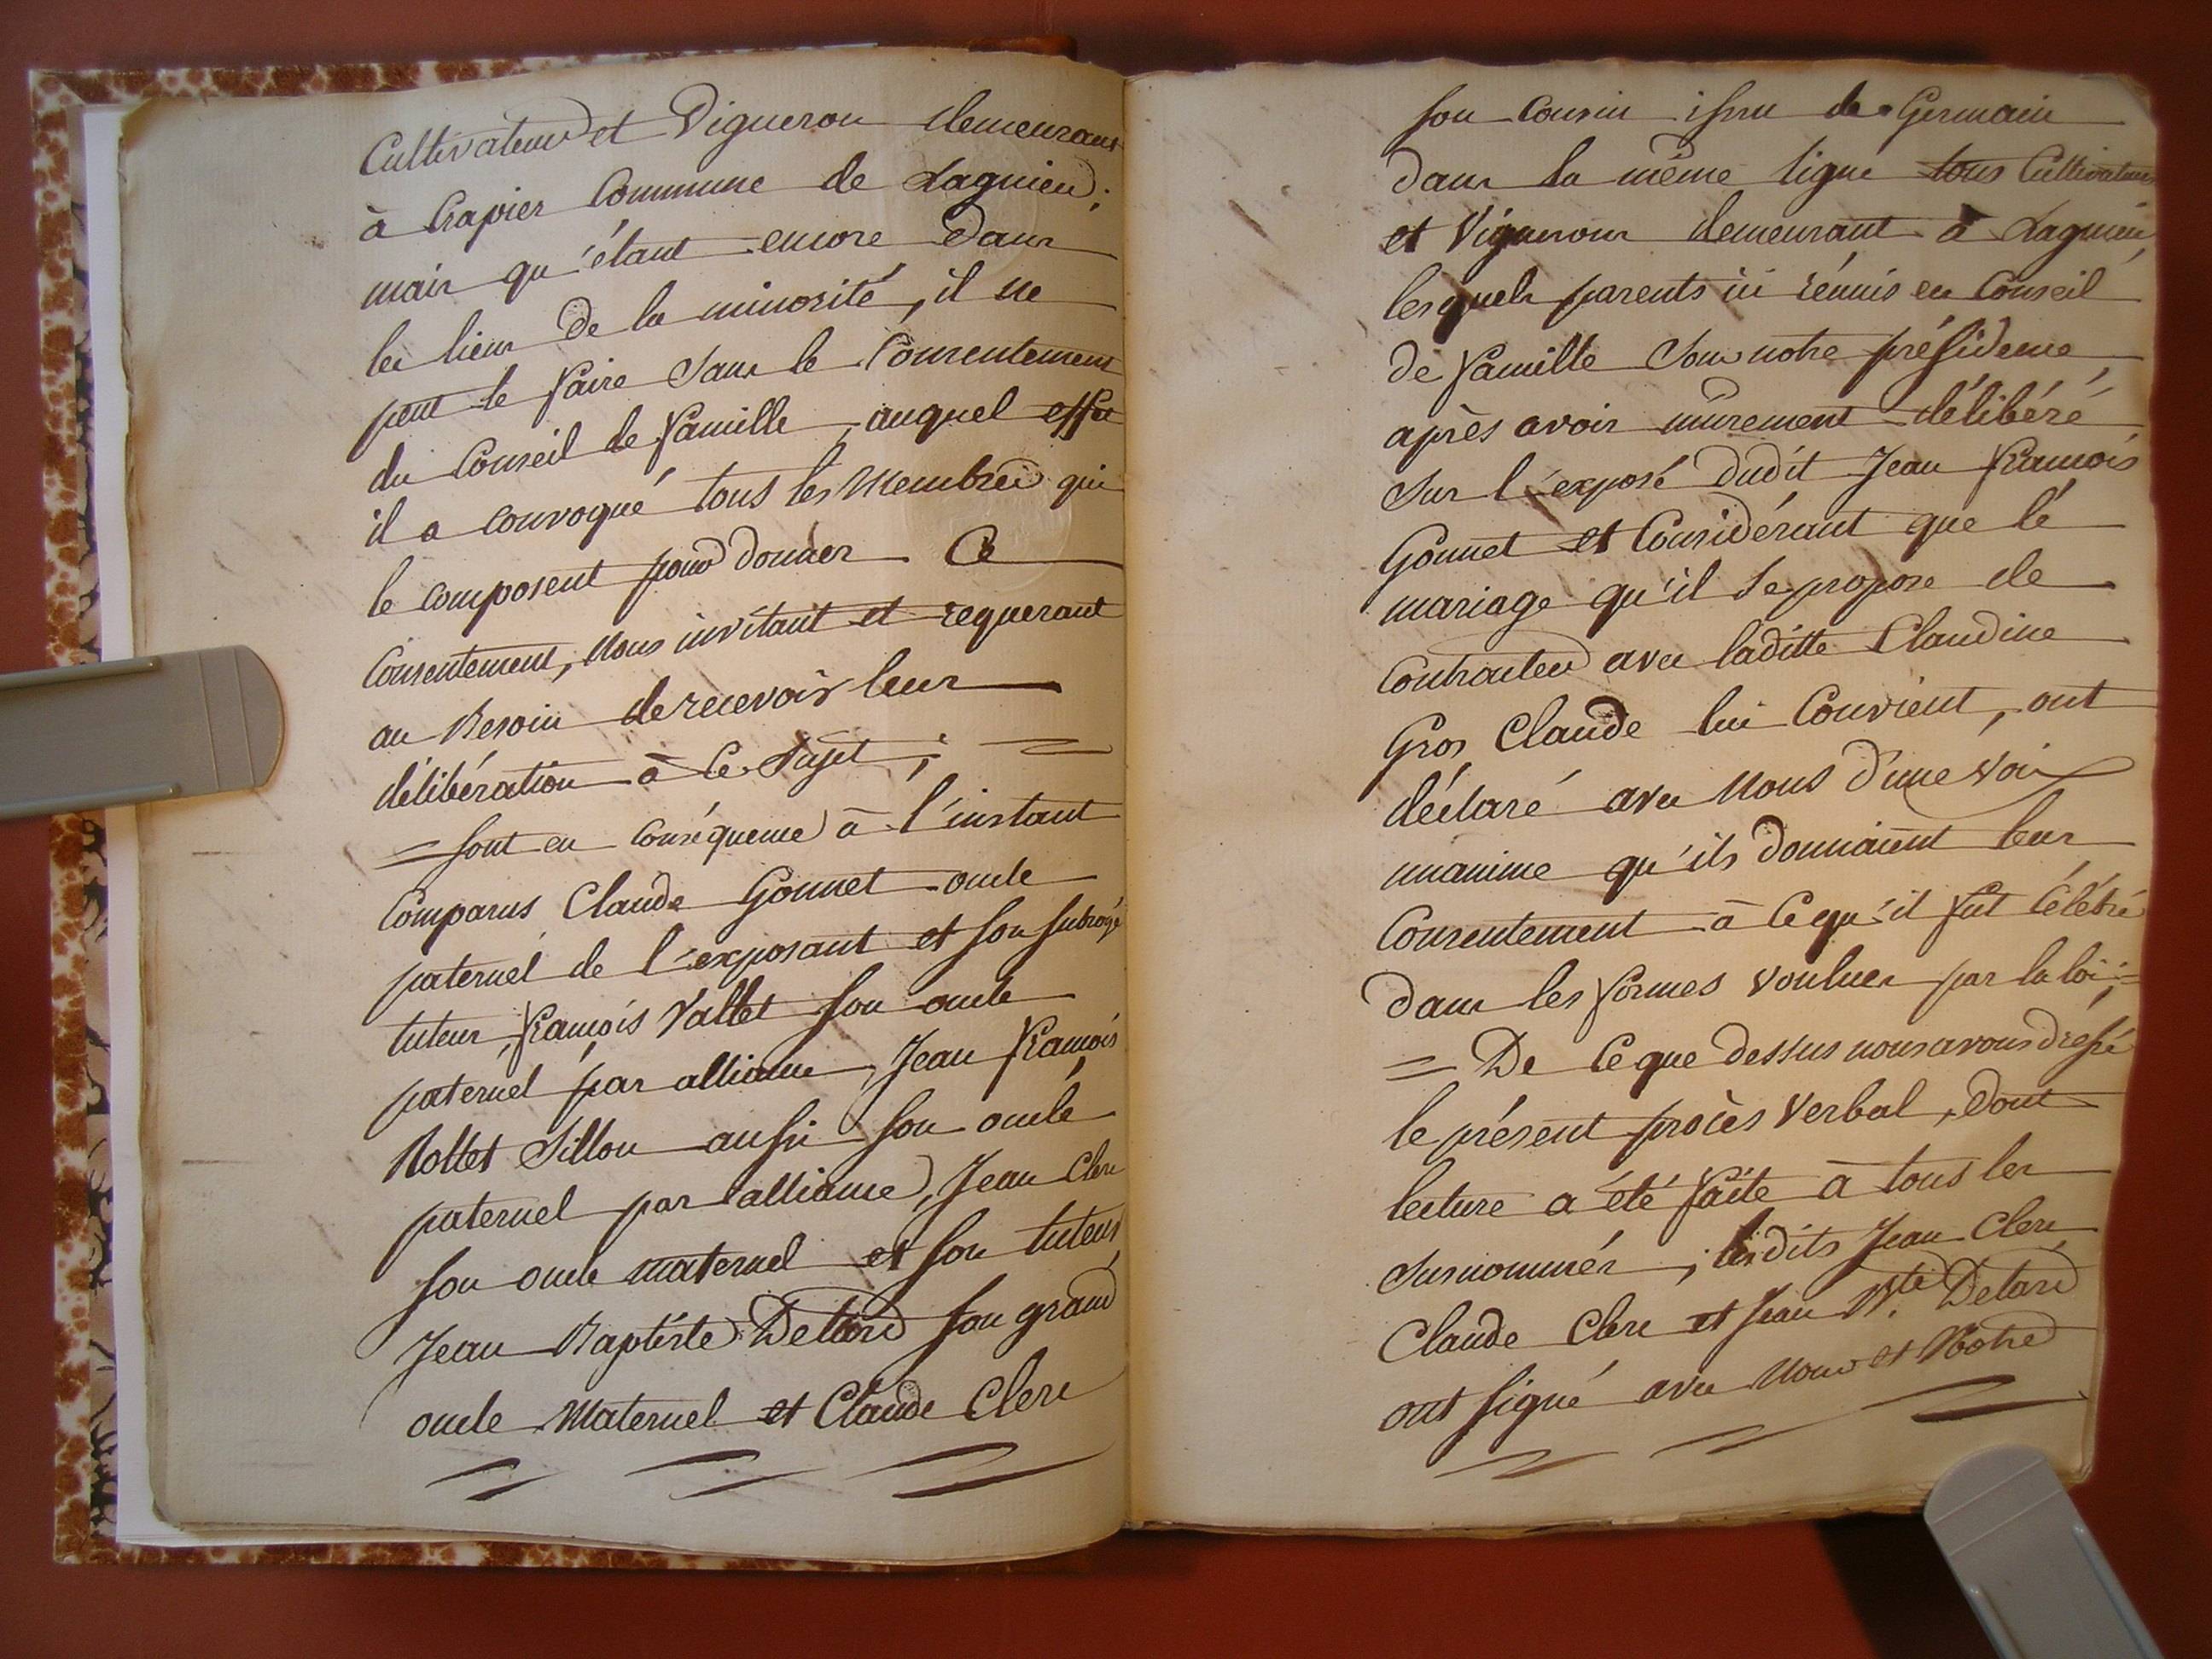 Cultivateur et Vigneron demeurant
à Crapier Commune de Lagnieu;
mais qu'étant encore dans
les liens de la minorité, il ne
peut le faire sans le Consentement
du Conseil de famille, auquel effet
il a convoqué tous les Membres qui
le composent pour donner Ce
Consentement, Nous invitant et requerant
au Besoin de recevoir leur
délibération à Ce sujet;
= sont en conséquence à l'instant
Comparus Claude Gonnet oncle
paternel de l'exposant et son subrogé
tuteur, françois Vallet son oncle
paternel par alliance, Jean françois
Rollet Sillon aussi son oncle
paternel par alliance, Jean Clerc
son oncle maternel et son tuteur,
Jean Baptiste Delard son grand
oncle Maternel et Claude Clerc
son Cousin issu de Germain
dans la même ligne tous Cultivateurs
et Vignerons demeurant à Lagnieu,
lesquels parents ici réunis en Conseil
de famille Sous notre présidence,
après avoir mûrement délibéré
Sur l'exposé dudit Jean françois
Gonnet et Considérant que le
mariage qu'il se propose de
Contracter avec laditte Claudine
Gros Claude lui Convient, ont
déclaré avec Nous d'une voix
unanime qu'ils donnaient leur
Consentement à Ce qu'il fut Célébré
dans les formes voulues par la loi;=
= De Ce que dessus nous avons dressé
le présent procès Verbal, Dont
lecture a été faite à tous les
Susnommés, lesdits Jean Clerc,
Claude Clerc et Jean Bte. Delard
ont signé avec Nous et Notre